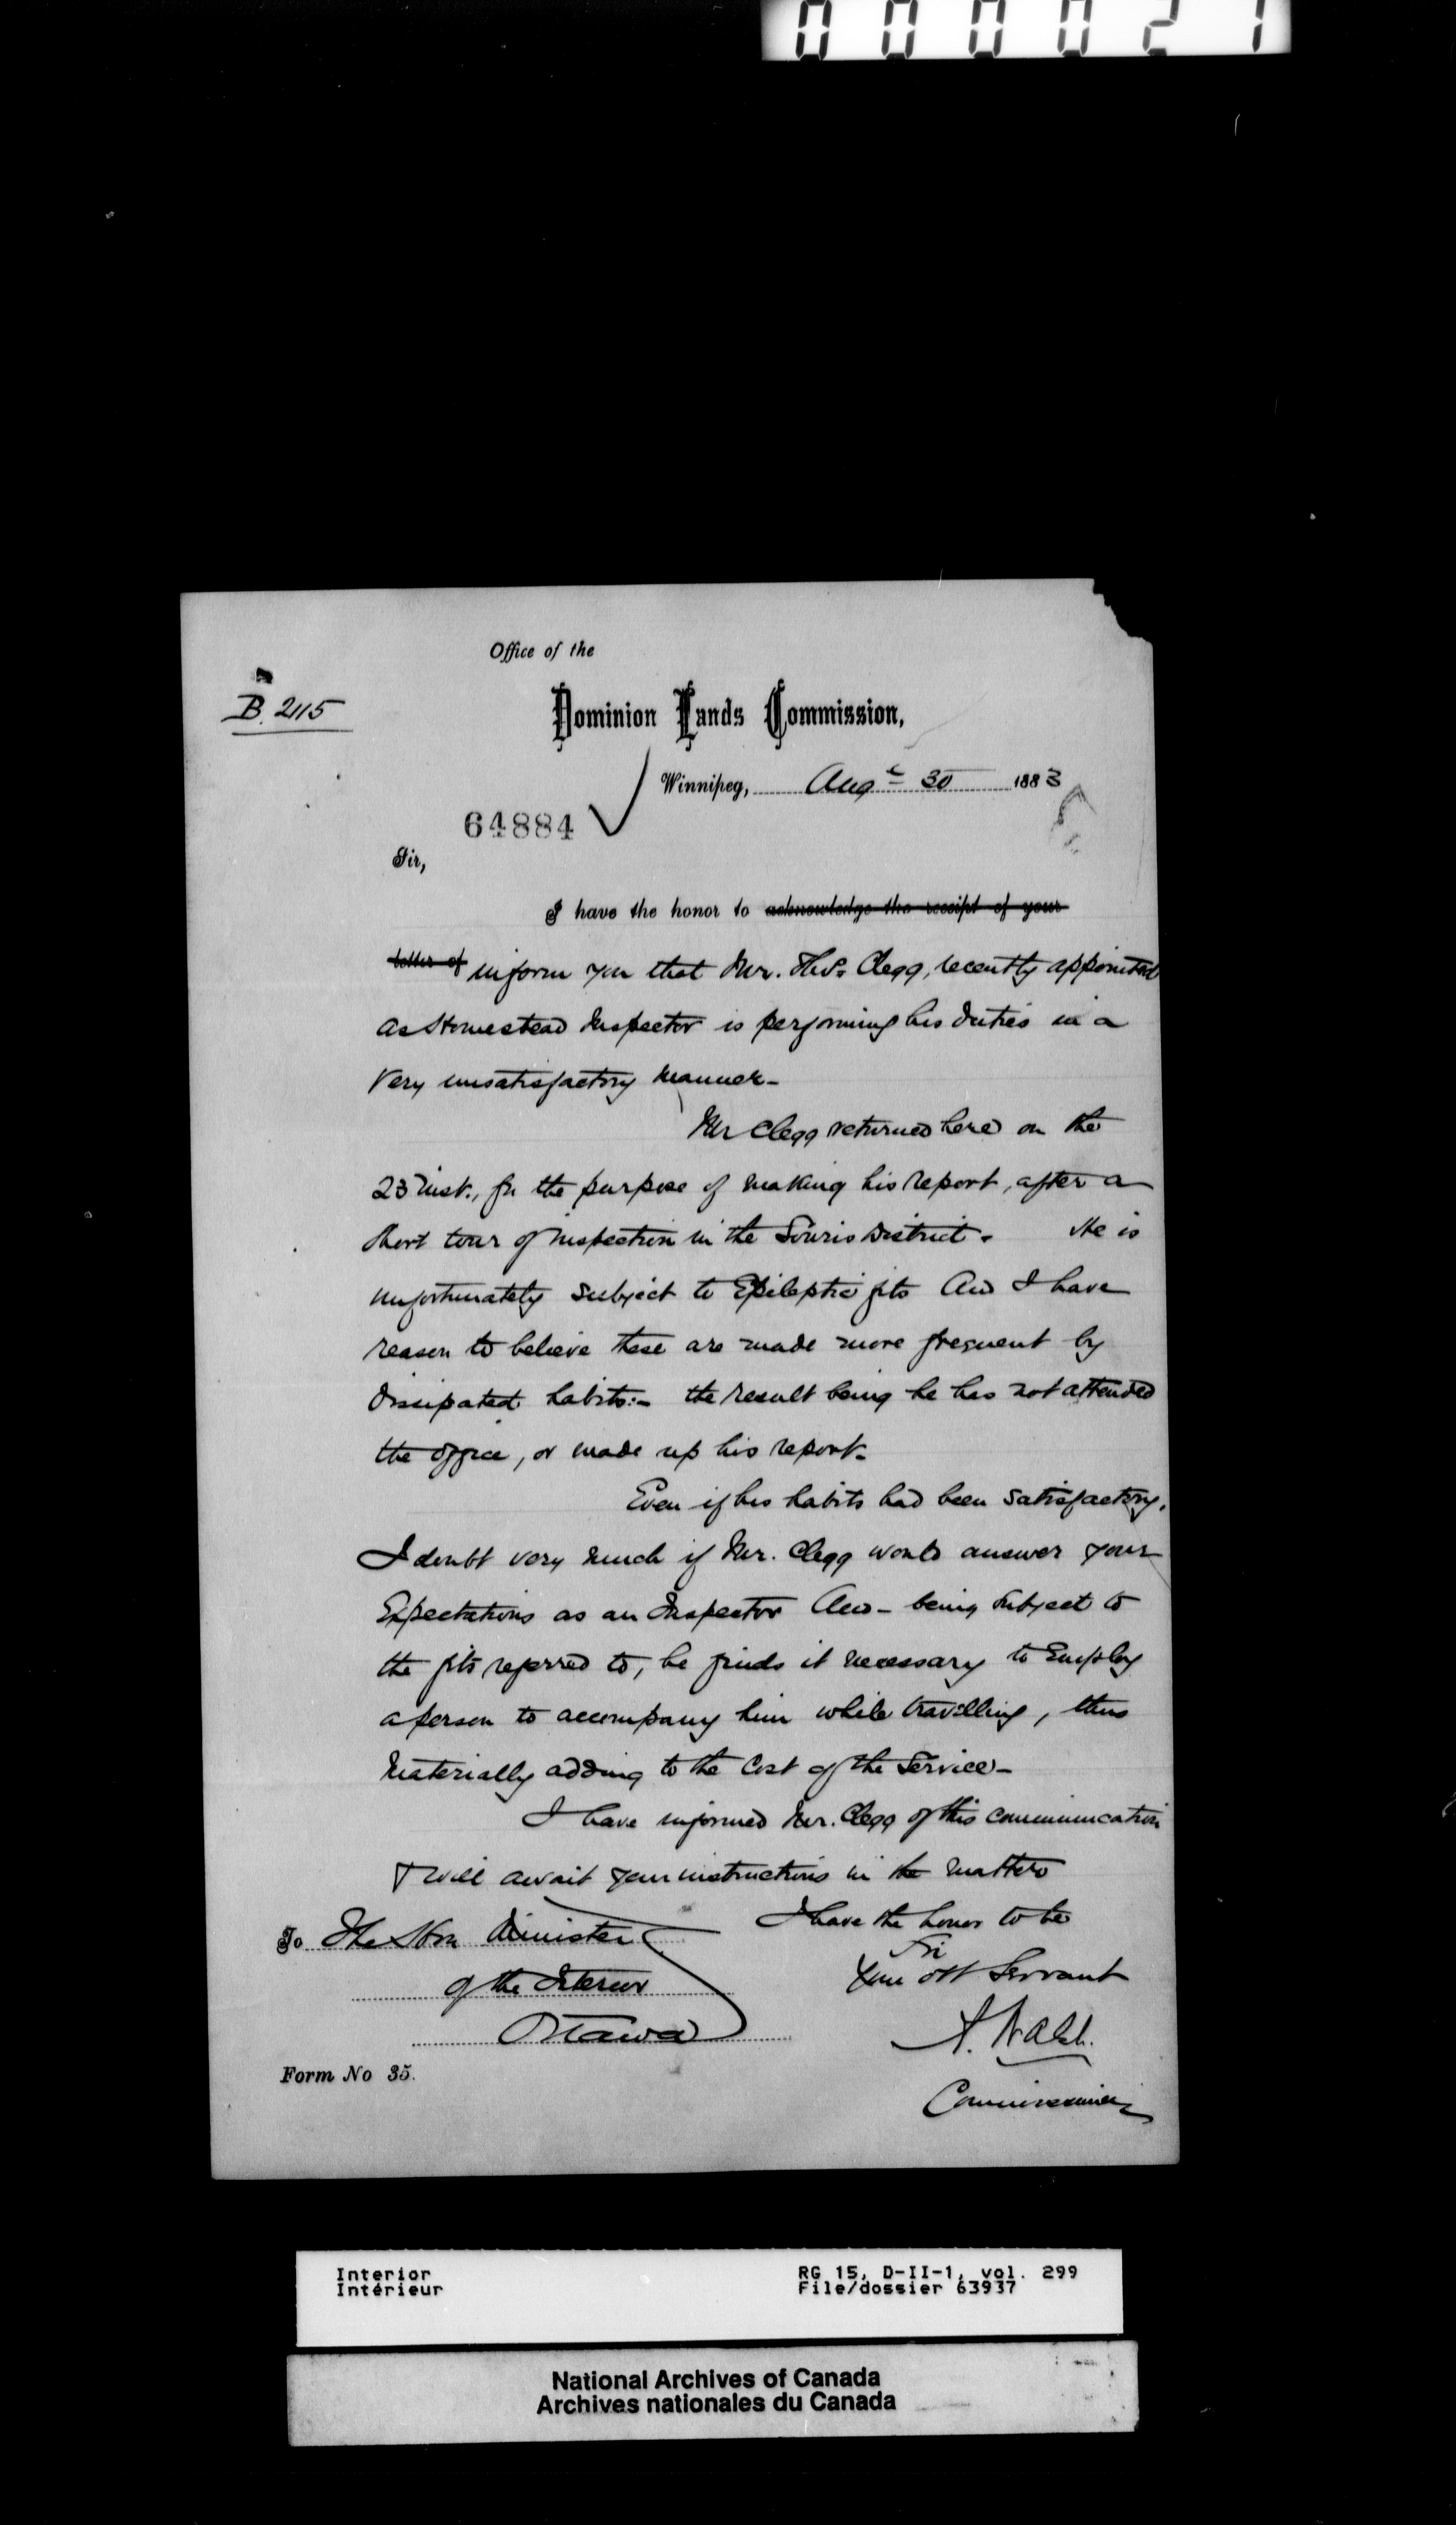 000021
Office of the
B. 2115
Dominion Lands Commission,
Winnipeg, Augt 30 1883
64884
Sir,
I have the honor to acknowledge the receipt of your
letter of inform you that Mr. Thos. Clegg, recently appointed
as Homestead Inspector is performing his duties in a
very unsatisfactory manner-
Mr Clegg returned here on the
23 inst., for the purpose of making his report, after a
short tour of inspection in the Souris District. He is
unfortunately subject to Epileptic fits And I have
reason to believe these are made more frequent by
dissipated habits:- the result being he has not attended
the office, or made up his report-
Even if his habits had been satisfactory,
I doubt very much if Mr. Clegg would answer your
Expectations as an Inspector And - being subject to
the fits referred to, he finds it necessary to Employ
a person to accompany him while travelling, thus
materially adding to the Cost of the Service-
I have informed Mr. Clegg of this communication
& will await your instructions in the matter
I have the honor to be
To The Hon Minister
Sir
of the Interior
Your obt Servant
Ottawa
A. Walsh.
Form No 35.
Commissioner
Interior
Intérieur
RG 15, D-II-1, vol. 299
File/dossier 63937
National Archives of Canada
Archives nationales du Canada